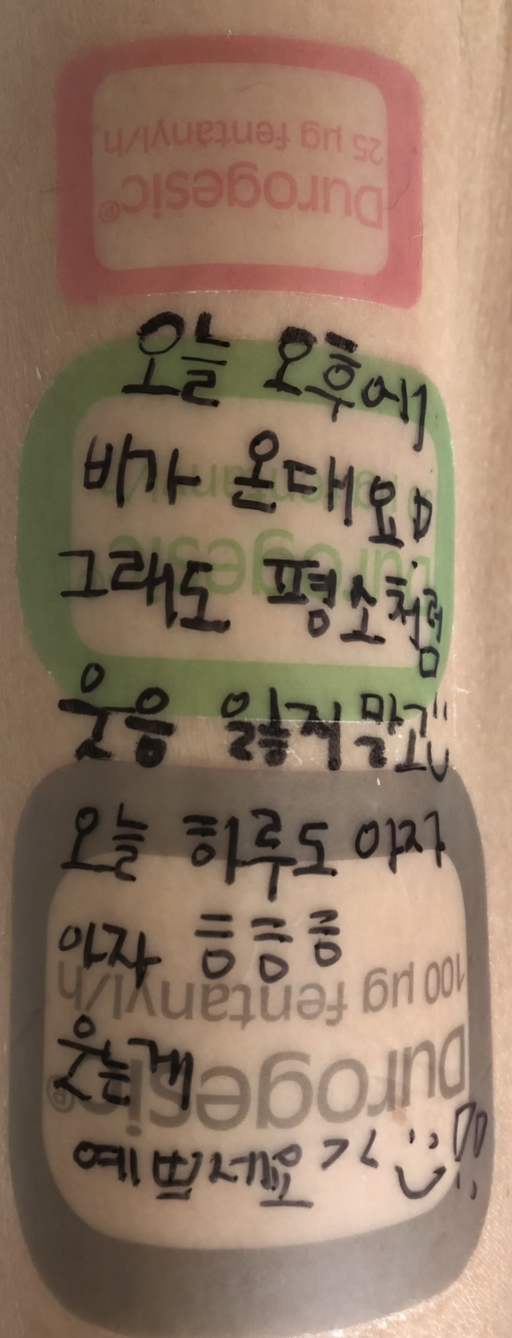 25 µg fentanyl/h
Durogesic®
오늘 오후에
비가 온대요ㅁ
그래도 평소처럼
웃음 잃지 말고
오늘 하루도 아자
아자 흥흥흥
100 µg fentanyl/h
웃는게
Durogesic®
예쁘세요 > < :)